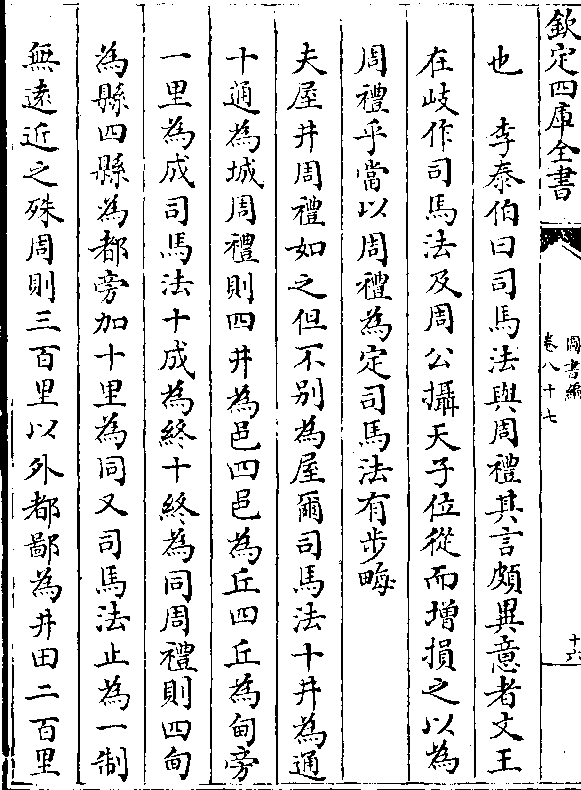 欽定四庫全書
圖書編
卷八十七
十六
也　李泰伯曰司馬法與周禮其言頗異意者文王
在岐作司馬法及周公攝天子位從而增損之以為
周禮乎當以周禮為定司馬法有步畮
夫屋井周禮如之但不别為屋爾司馬法十井為通
十通為城周禮則四井為邑四邑為丘四丘為甸旁
一里為成司馬法十成為終十終為同周禮則四甸
為縣四縣為都旁加十里為同又司馬法止為一制
無逺近之殊周則三百里以外都鄙為井田二百里